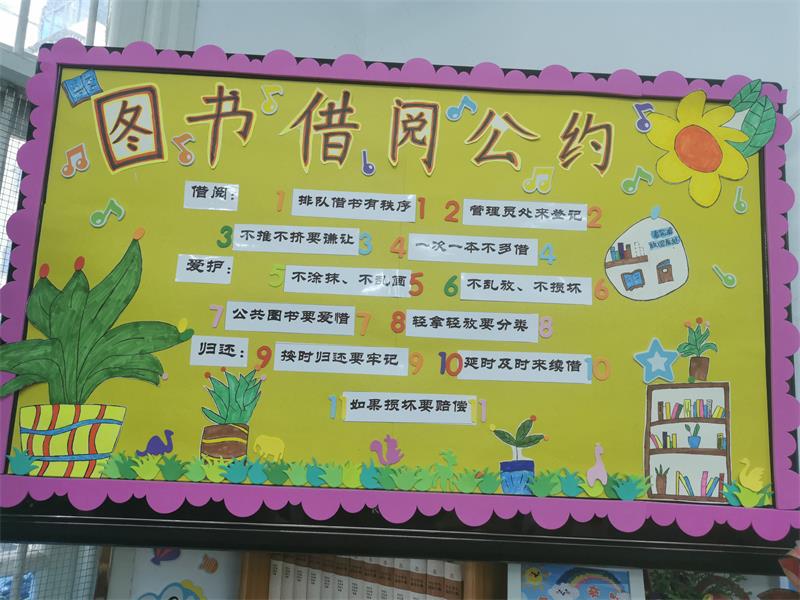 图书借阅公约
借阅: 1 排队借书有秩序 1 2 管理员处来登记 2
3 不推不挤要谦让 3 4 一次一本不多借 4
爱护: 5 不涂抹、不乱画 5 6 不乱放、不损坏 6
7 公共图书要爱惜 7 8 轻拿轻放要分类 8
归还: 9 按时归还要牢记 9 10 延时及时来续借 10
1 如果损坏要赔偿 1